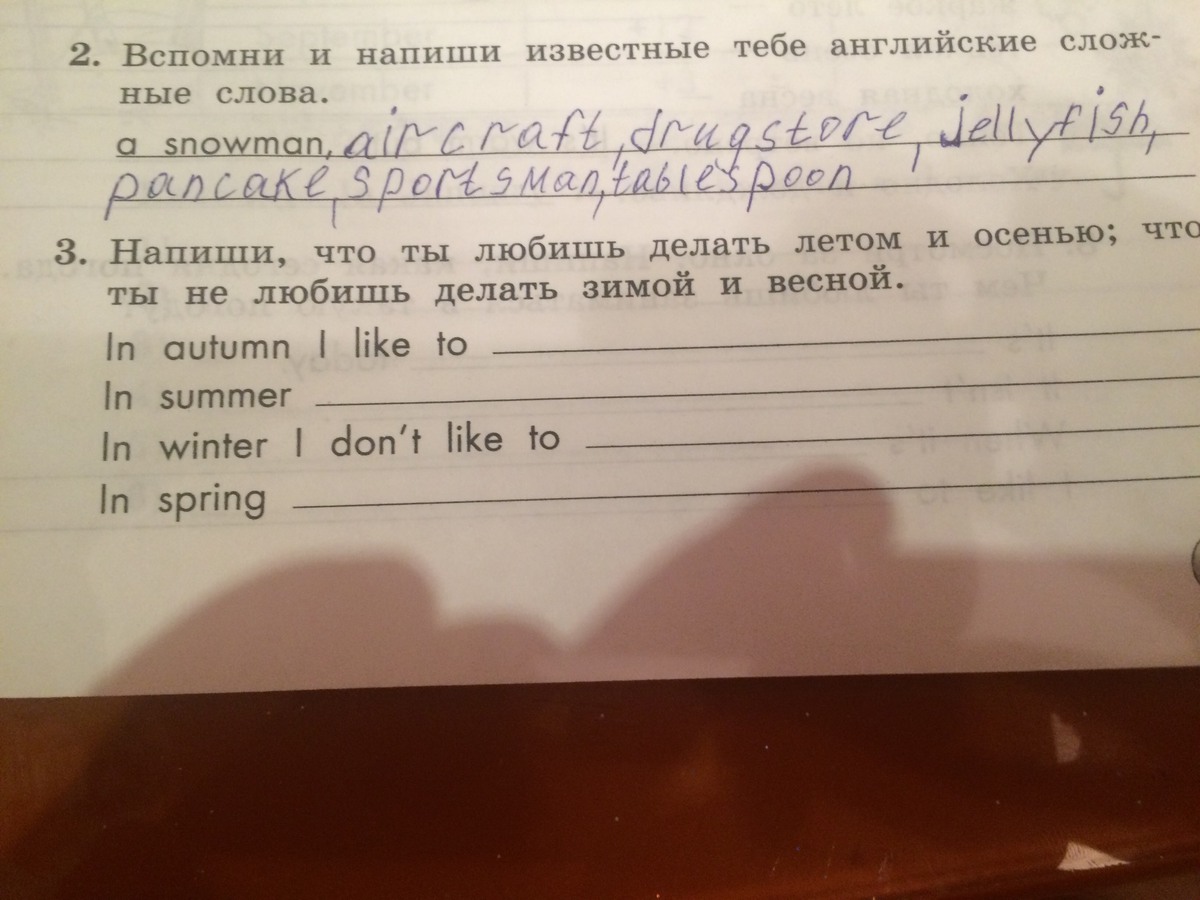 2. Вспомни и напиши известные тебе английские слож-
ные слова.
a snowman, aircraft, drugstore, jellyfish,
pancake, sportsman, tablespoon
3. Напиши, что ты любишь делать летом и осенью; что
ты не любишь делать зимой и весной.
In autumn I like to
In summer
In winter I don't like to
In spring